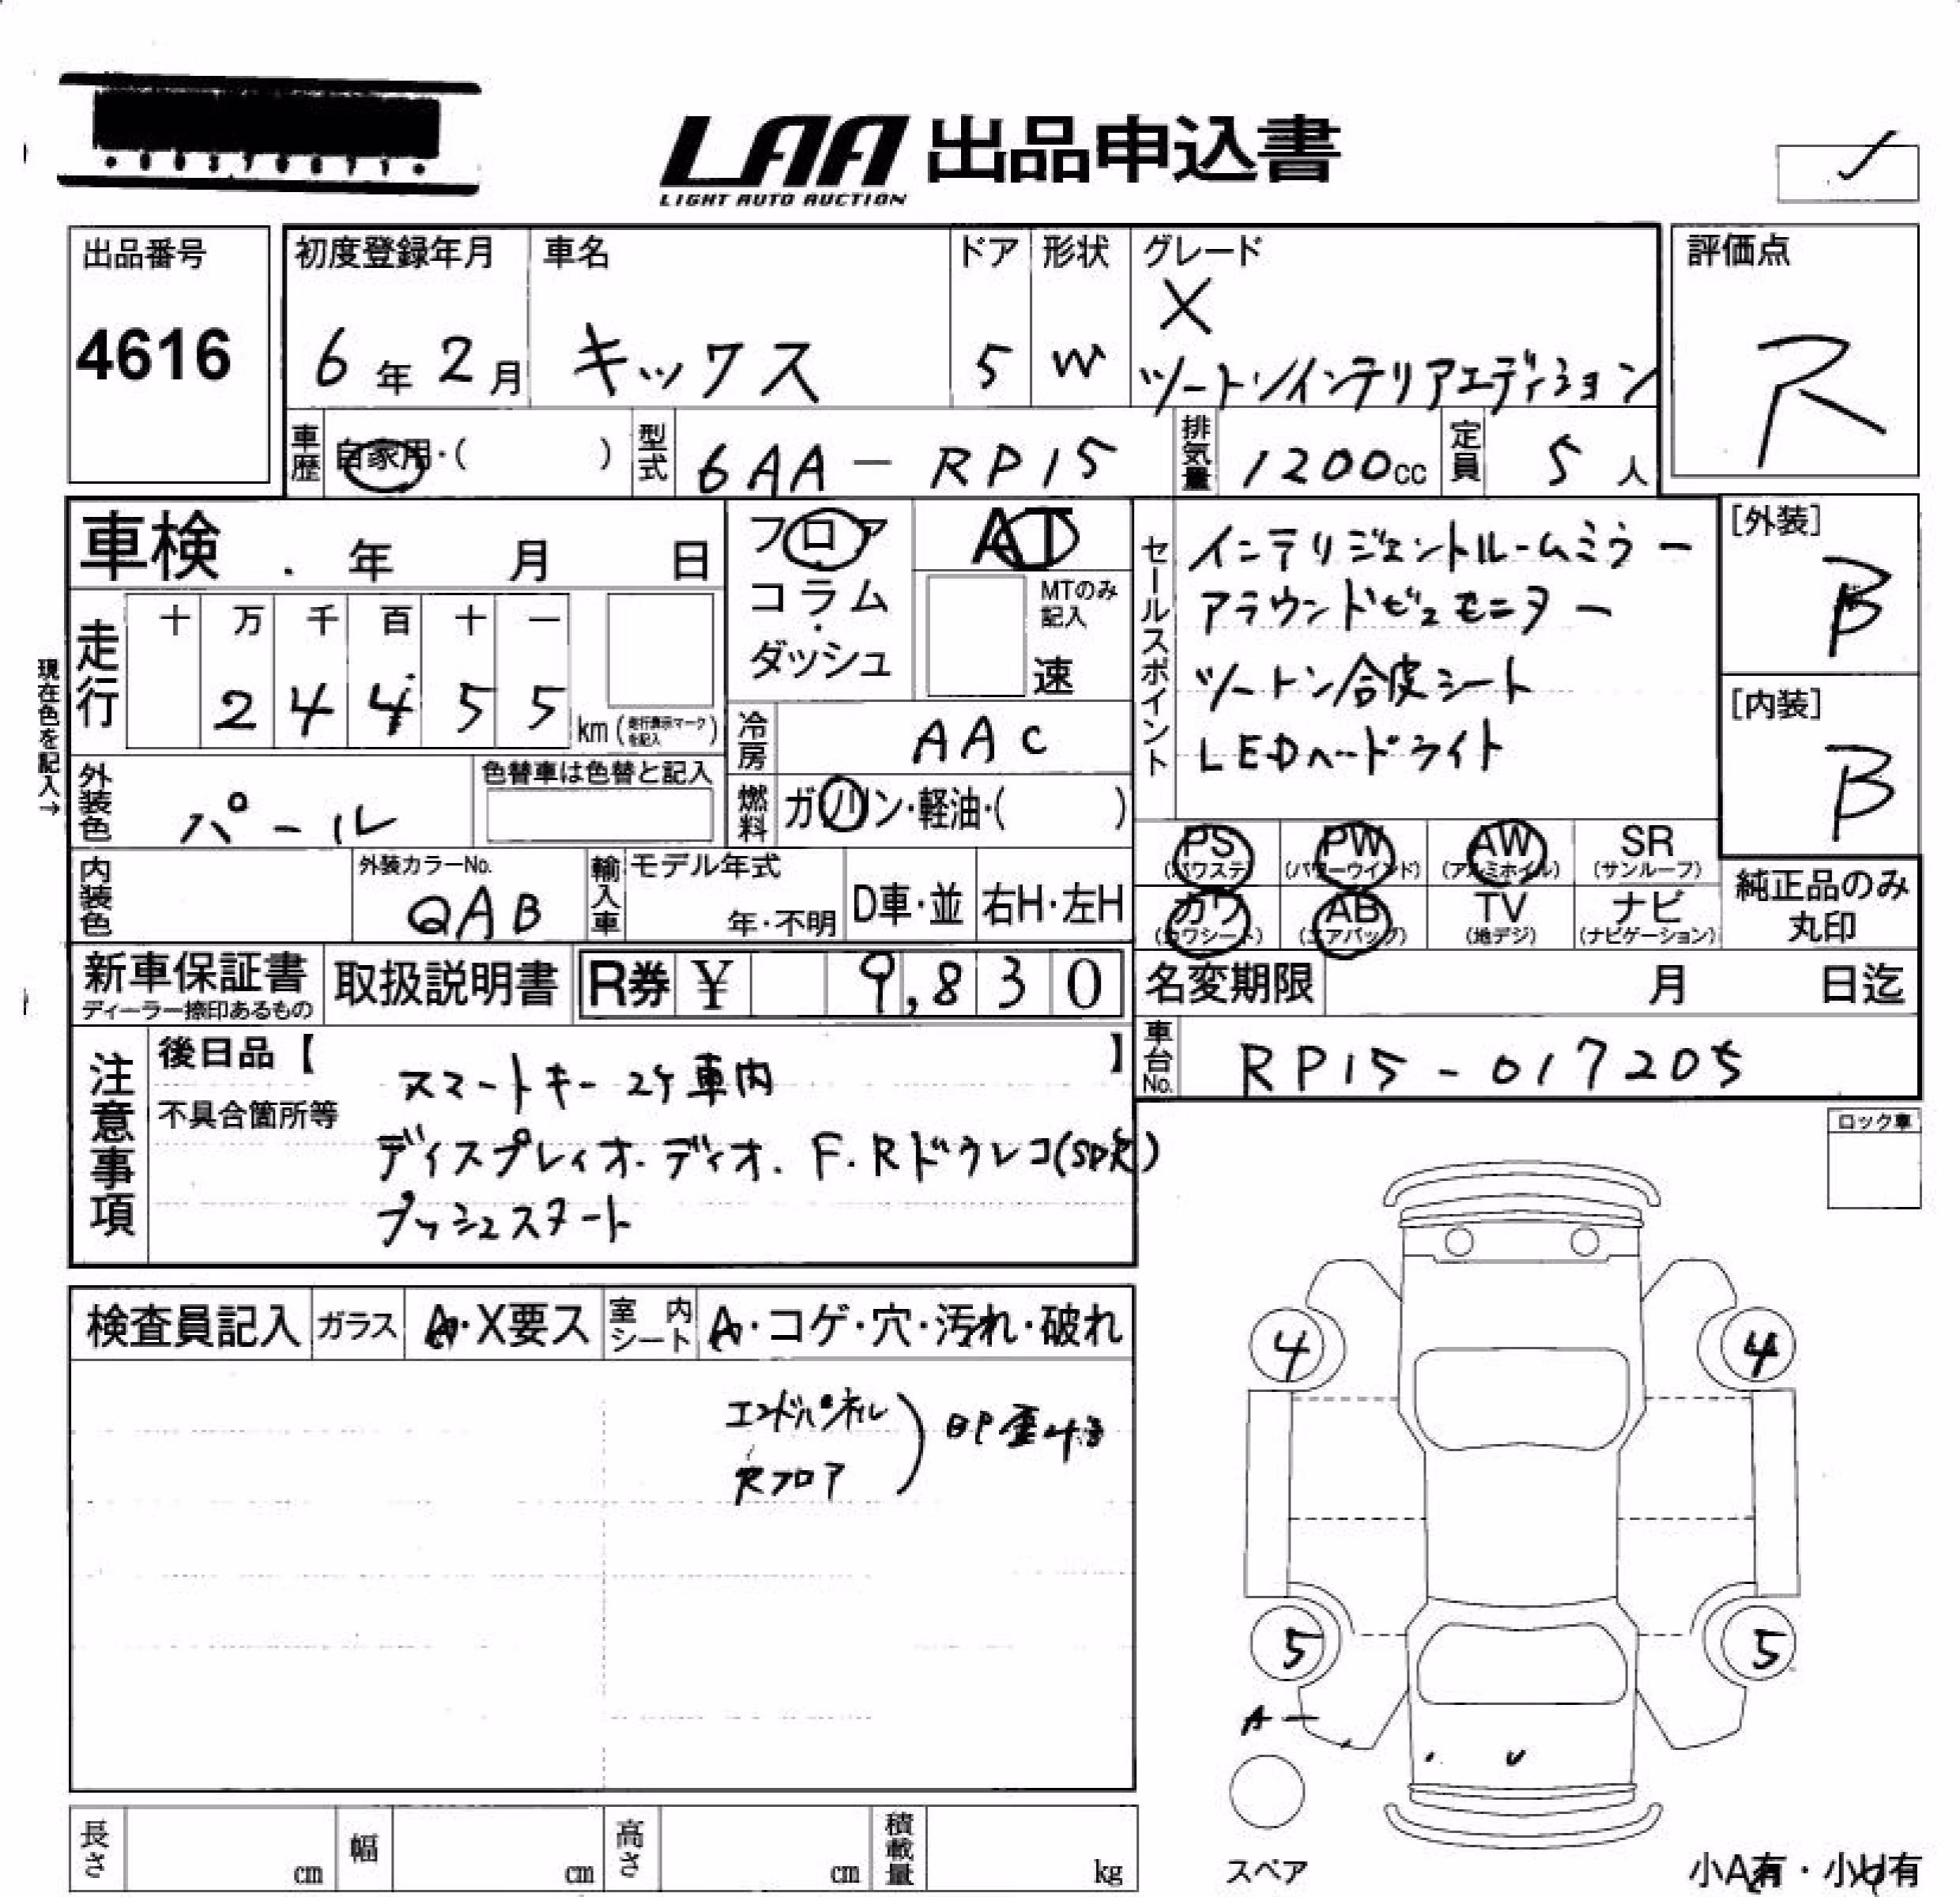 LAA 出品申込書
LIGHT AUTO AUCTION
出品番号
4616
初度登録年月
6年2月
車名
キックス
ドア
5
形状
W
グレード
X
ツートンインテリアエディション
評価点
R
車歴 自家用・( )
型式 6AA-RP15
排気量 1200cc
定員 5人
車検 . 年 月 日
走行 十 万 千 百 十 一
2 4 4 5 5
km (走行表示マークを記入)
現在色を記入→
フロア
コラム
・
ダッシュ
AT
MTのみ記入
速
冷房 AAC
燃料 ガソリン・軽油・( )
セールスポイント
インテリジェントルームミラー
アラウンドビュモニター
ツートン合皮シート
LEDヘードライト
[外装]
B
[内装]
B
外装色 パール
色替車は色替と記入
内装色
外装カラーNo.
QAB
輸入車
モデル年式
年・不明
D車・並
右H・左H
PS (パワステ)
PW (パワーウインド)
AW (アルミホイル)
SR (サンルーフ)
カワ (カワシート)
AB (エアバッグ)
TV (地デジ)
ナビ (ナビゲーション)
純正品のみ
丸印
新車保証書
ディーラー捺印あるもの
取扱説明書
R券 ¥ 9,830
名変期限 月 日迄
車台No. RP15-017205
注意事項
後日品【 】
スマートキー 2ケ 車内
不具合箇所等
ディスプレイオーディオ. F.Rドラレコ(SD欠)
プッシュスタート
ロック車
検査員記入
ガラス A・X要ス
室内シート A・コゲ・穴・汚れ・破れ
エンドパネル
Rフロア
4 4
5 5
A
スペア
小A有・小U有
長さ cm
幅 cm
高さ cm
積載量 kg